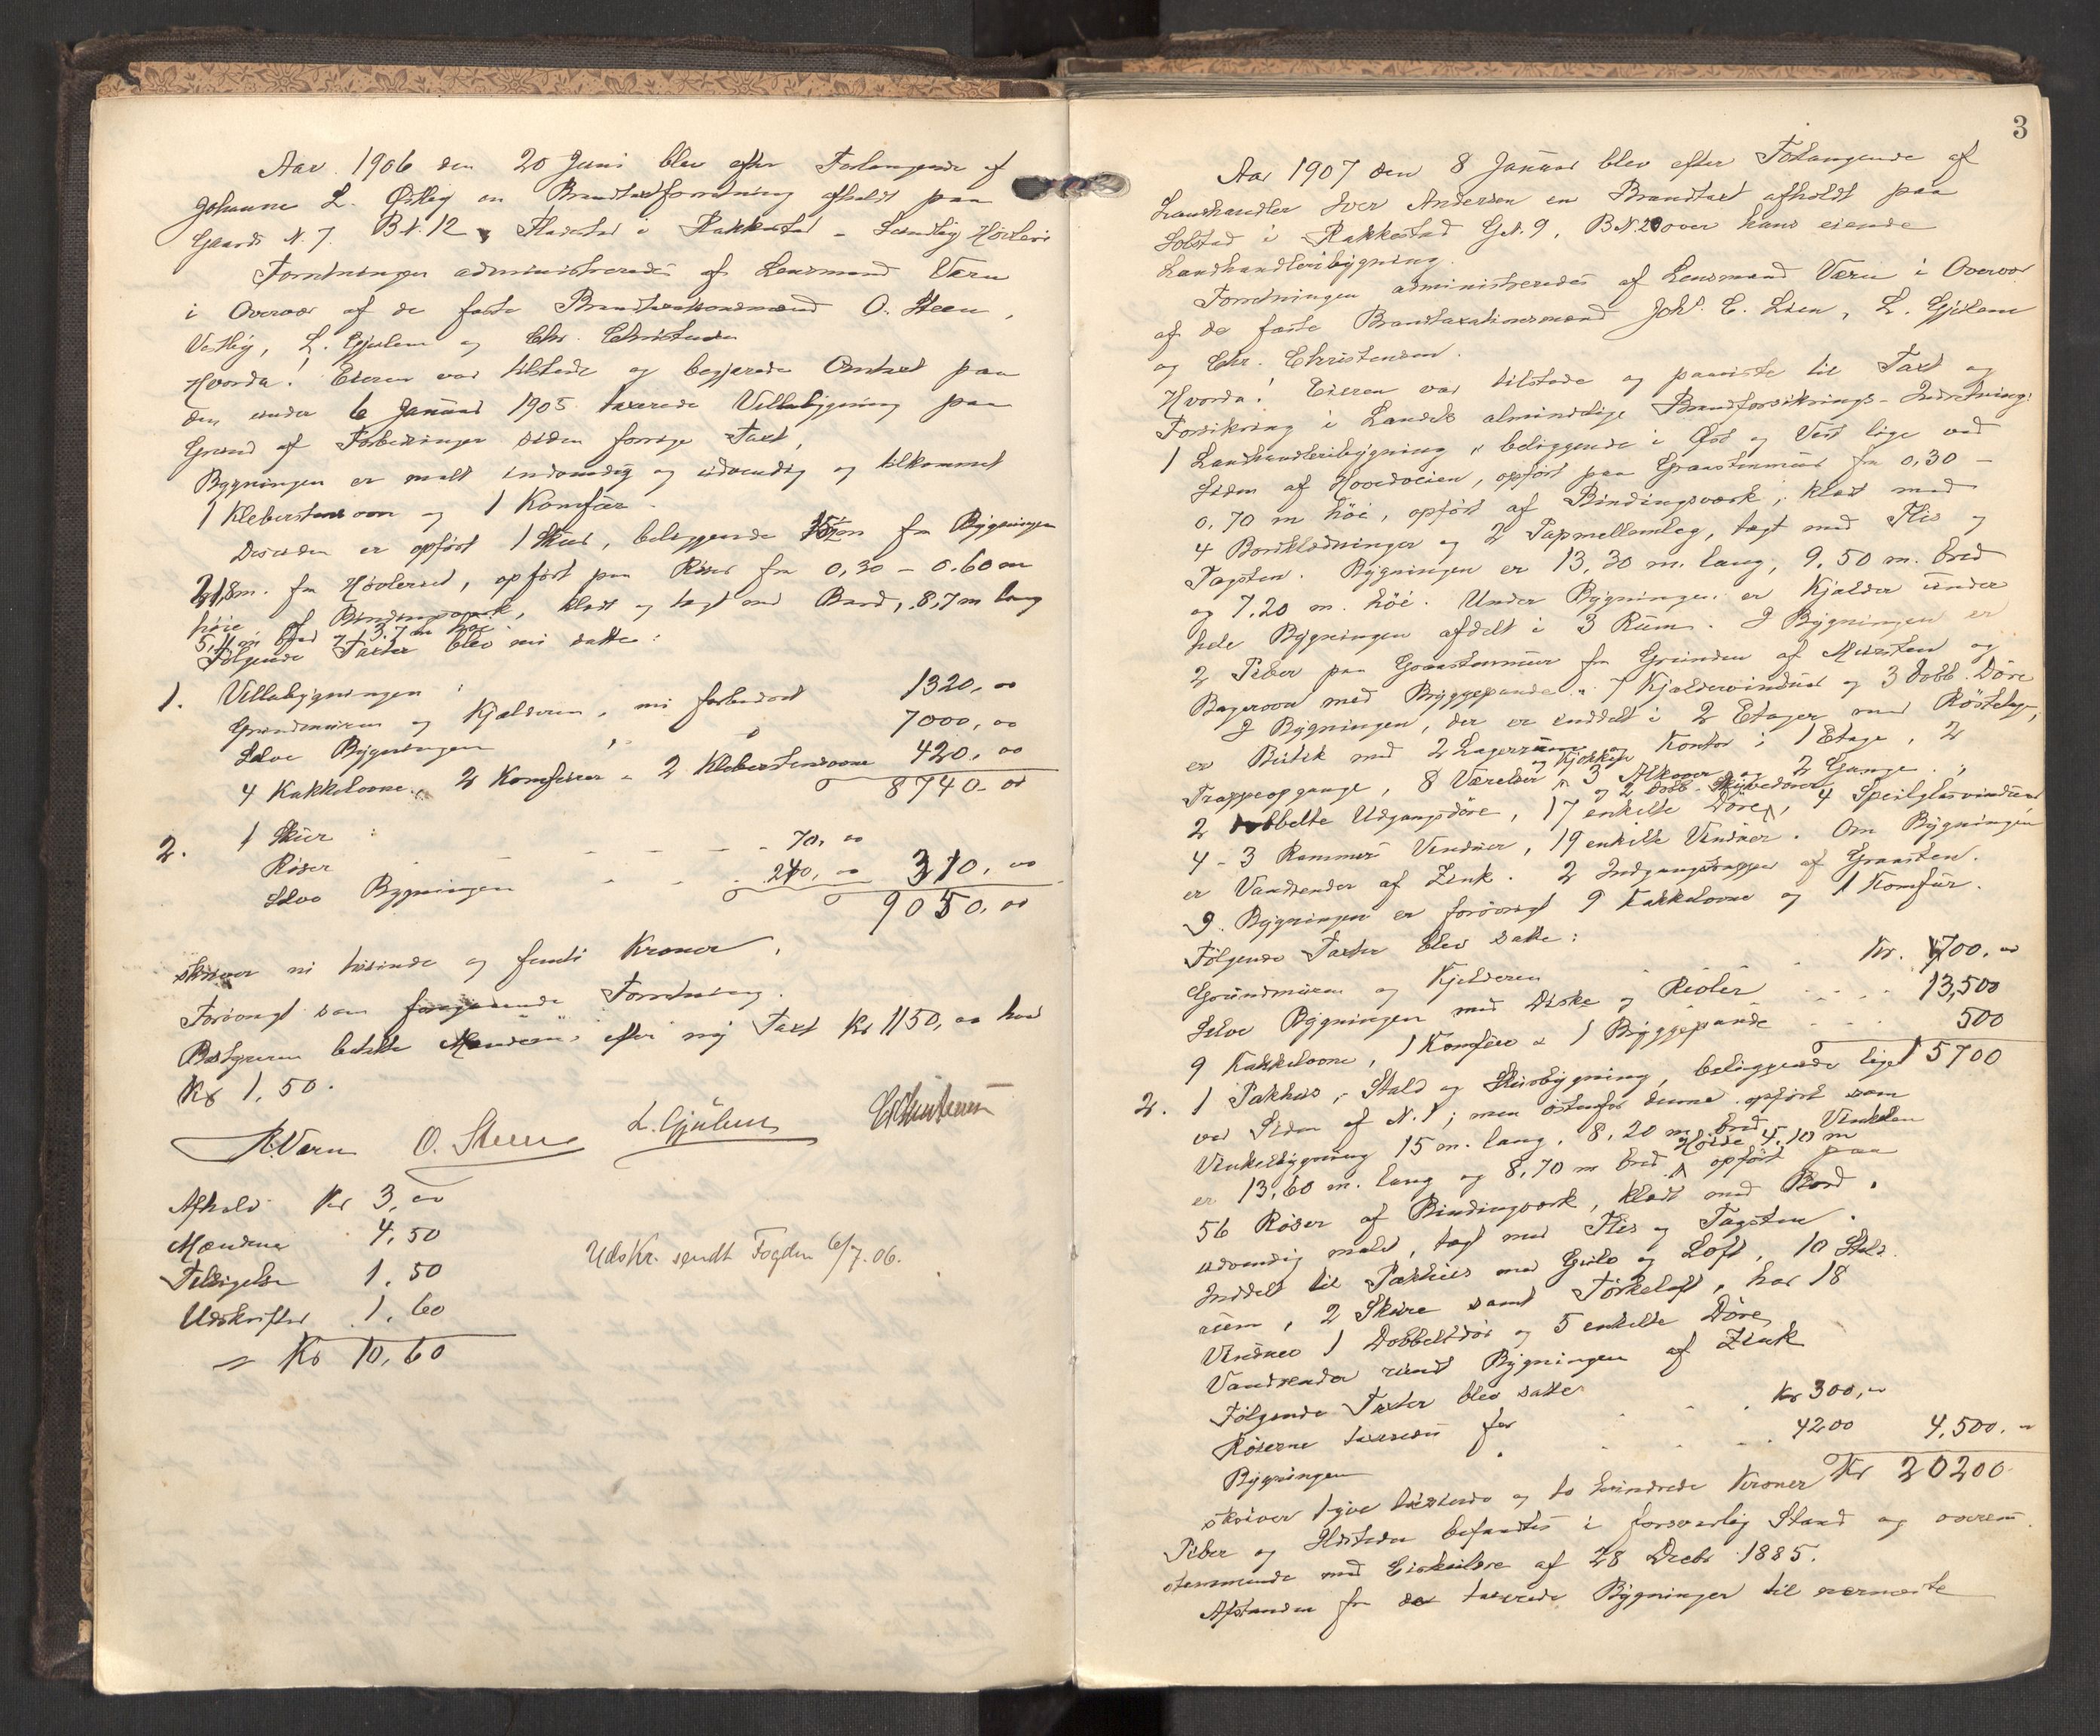 Aar 1906 den 20 Juni blev efter Forlangende af
Johanne L. Østby en Brandtaxtforretning afholdt paa
Gaards N. 7. B.N. 12 i Rakkestad - Sundby Høvleri
Forretningen administreredes af Lensmand Værn
i Overvær af de faste Brandtaxtionsmænd O. Steen,
Vestby, L. Gjulem og Chr. Christensen
Hvorda! Eieren var tilstede og begjærede Omtaxt paa
den under 6 Januar 1905 taxerede Villabygning paa
Grund af Forbedringer siden forrige Taxt,
Bygningen er malt indvendig og udvendig og tilkommet
1 Klebersten oon og 1 Komfur.
Desuden er opført 1 Skur, beliggende fra Bygningen
21,8 m. fra Høvleriet, opført paa Røser fra 0,30 - 0.60 m
høie af Bindingsværk, klædt og tagt med Bord, 8,7 m lang
5,4 m bred og 3.7 m høi.
Følgende Taxter blev nu satte:
1. Villabygningen :
Grundmuren og Kjælderen, nu forbedret 1320,00
Selve Bygningen " " 7000,00
4 Kakkelovne, 2 Komfurer - 2 Kleberstensovne 420,00
8740-00
2. 1 Skur :
Røser - - - - 70,00
Selve Bygningen - - - 240,00 310,00
9050,00
skriver ni tusinde og femti Kroner.
Forøvrigt som foregaaende Forretning.
Bestyreren betalte Mændene efter ny Taxt Kr 1150,00 hver
Kr 1,50.
R. Værn O. Steen L. Gjulem Chr Christensen
Afhold Kr 3,00
Mændene 4,50
Tilsigelse 1.50
Udskrifter 1.60
= Kr 10,60
Udskr. sendt Fogden 6/7.06.
3
Aar 1907 den 8 Januar blev efter Forlangende af
Landhandler Iver Andersen en Brandtaxt afholdt paa
Solstad i Rakkestad G.N. 9, B.N. 20 over hans eiende
Landhandleribygning.
Forretningen administreredes af Lensmand Værn i Overvær
af de faste Brandtaxationsmænd Joh. E. Lien, L. Gjulem
og Chr. Christensen.
Hvorda! Eieren var tilstede og paaviste til Taxt og
Forsikring i Landets almindelige Brandforsikrings-Indretning:
1 Landhandleribygning, beliggende i Øst og Vest lige ved
Siden af Hovedveien, opført paa Graastensmur fra 0,30 -
0,70 m høi, opført af Bindingsværk, klædt med
4 Bordklædninger og 2 Papmellemlæg, tagt med Flis og
Tagsten. Bygningen er 13,30 m. lang, 9,50 m. bred
og 7,20 m. høi. Under Bygningen er Kjælder under
hele Bygningen afdelt i 3 Rum. I Bygningen er
2 Piber paa Graastensmur fra Grunden af Mursten og
Bagerovn med Bryggepande. 7 Kjældervinduer og 3 dobb. Døre
I Bygningen, der er inddelt i 2 Etager med Røstelag,
er Butik med 2 Lagerrum og Kontor i 1 Etage, 2
Trappeopgange, 8 Værelser og Kjøkken, 3 Alkover og 2 Gange.
2 dobbelte Udgangsdøre, 17 enkelte Døre og 2 dobb. Skyvedøre, 4 Speilglasvinduer
4 - 3 Rammers Vinduer, 19 enkelte Vinduer. Om Bygningen
er Vandrender af Zink. 2 Indgangstrapper af Graasten.
I Bygningen er forøvrigt 9 Kakkelovne og 1 Komfur.
Følgende Taxter blev satte:
Grundmuren og Kjelderen Kr. 1700,00
Selve Bygningen med Diske og Reoler 13,500
9 Kakkelovne, 1 Komfur & 1 Bryggepande 500
15700
2. 1 Pakhus, Stald og Skursbygning, beliggende lige
ved Siden af N. 1; men østenfor denne opført som
Vinkelbygning 15 m. lang, 8,20 m bred. Vinkelen
er 13,60 m. lang og 8,70 m bred. Høide 4,10 m opført paa
56 Røser af Bindingværk, klædt med Bord,
udvendig malet, tagt med Flis og Tagsten.
Inddelt til Pakhus med Gulv og Loft, 10 Stald-
rum, 2 Skure samt Tørkeloft, har 18
Vinduer 1 Dobbeltdør og 5 enkelte Døre
Vandrender rundt Bygningen af Zink
Følgende Taxter blev satte
Røserne taxeredes for Kr 300,00
Bygningen 4200 4,500.00
Kr 20200
skriver tyve tusinde og to hundrede Kroner
Piber og Ildsteder befandtes i forsvarlig Stand og overens-
stemmende med Cirkulære af 28 Decbr 1885.
Afstanden fra de taxerede Bygninger til nærmeste